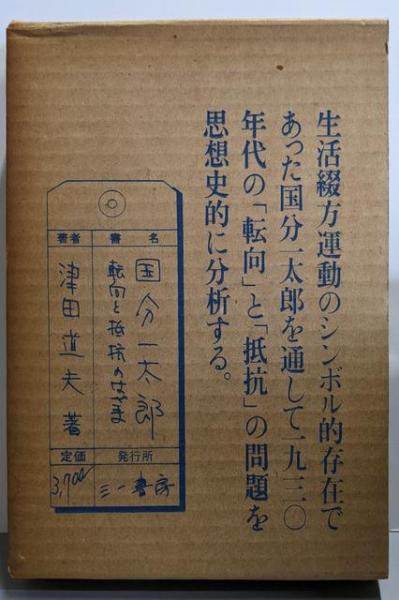 生活綴方運動のシンボル的存在で
あった国分一太郎を通して一九三〇
年代の「転向」と「抵抗」の問題を
思想史的に分析する。
書名
国分一太郎
転向と抵抗のはざま
著者
津田道夫著
発行所
三一書房
定価
3,700